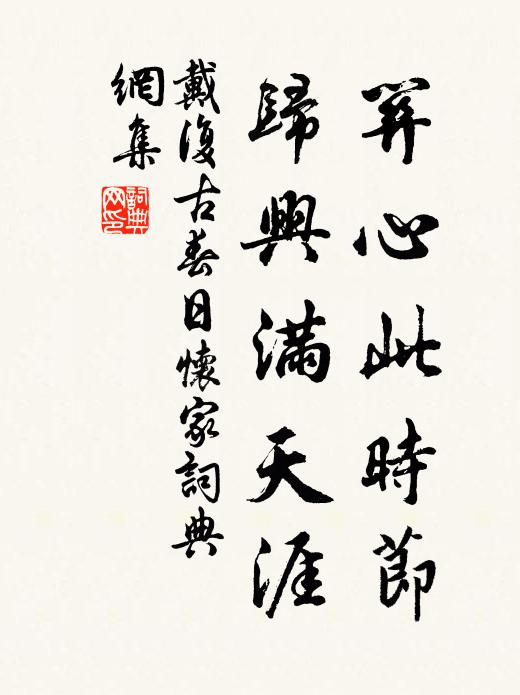 關心此時節
歸興滿天涯
戴復古春日懷家詞典
網集
詞典
网印